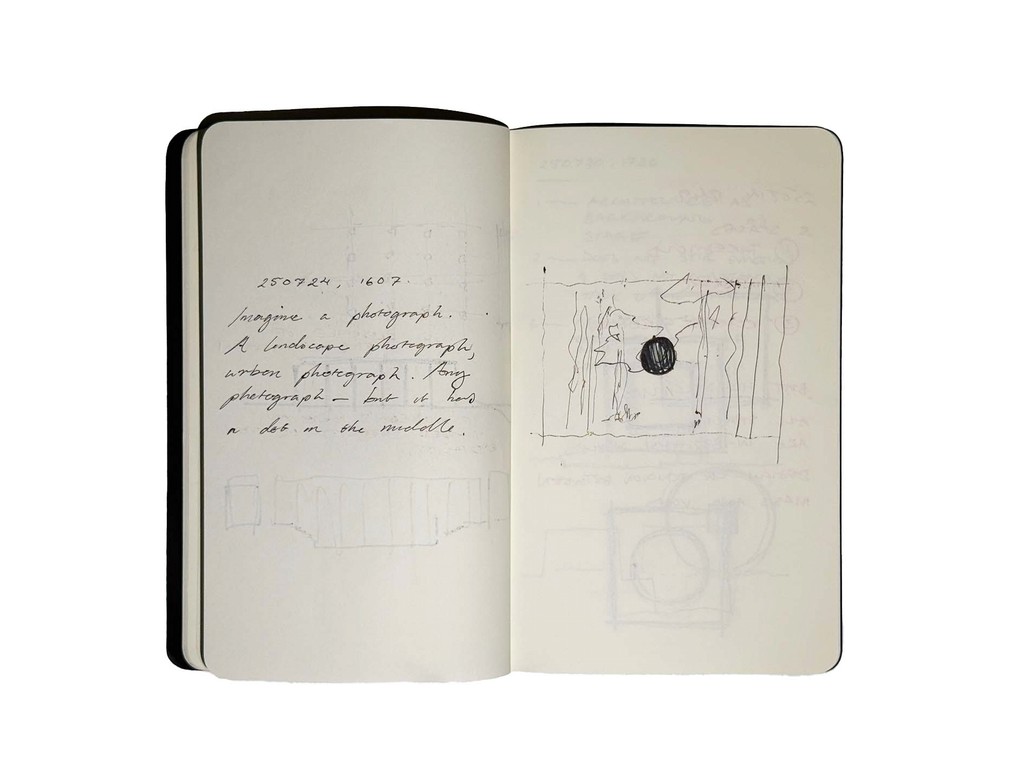 250724, 1607.
Imagine a photograph.
A landscape photograph,
urban photograph. Any
photograph — but it has
a dot in the middle.